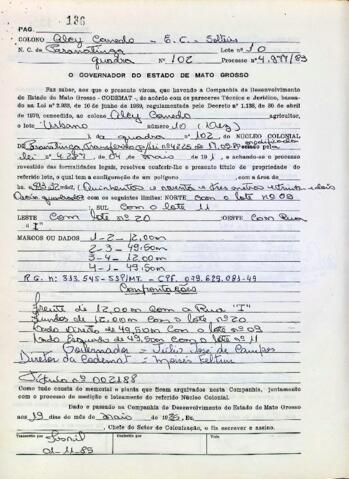 136
PAG.
COLONO Aloy Canedo - E.C. - Solteiro
N. C. de Paranatinga Lote nº 10
quadra Nº 102 Processo nº 4.977/89
O GOVERNADOR DO ESTADO DE MATO GROSSO
Faz saber, aos que o presente virem, que havendo a Companhia de Desenvolvimento
do Estado de Mato Grosso - CODEMAT -, de acôrdo com os pareceres Técnico e Jurídico, basea-
do na Lei nº 2.933, de 16 de junho de 1969, regulamentada pelo Decreto nº 1.138, de 30 de abril
de 1970, concedido, ao colono Aloy Canedo agricultor,
o lote Urbano número 10 (Dez)
da quadra nº 102 do NÚCLEO COLONIAL
de Paranatinga
lei nº 4287 de maio de 19 , e achando-se o processo
revestido das formalidades legais, resolveu conferir-lhe o presente título de propriedade do
referido lote, o qual tem a configuração de um polígono , com a área de
(Quinhentos e noventa e três metros e
quadrados com os seguintes limites: NORTE com o lote nº 09
; SUL com o lote 11
LESTE com lote nº 20 OESTE com Rua
"I"
MARCOS OU DADOS 1-2- 12,00m
2-3- 49,50m
3-4- 12,00m
4-1- 49,50m
R.G. nº 313.545-SSP/MT. - CPF. 079.629.081-49
Confrontações
Frente de 12,00m com a Rua "I"
Fundos de 12,00m com o lote nº 20
Lado Direito de 49,50m com o lote nº 09
Lado Esquerdo de 49,50m com o lote nº 11
Governador = Júlio José de Campos
Diretor da Codemat = Moisés Feltrin
Título nº 002188
Como tudo consta do memorial e planta que ficam arquivados nesta Companhia, juntamente
com o processo de medição e loteamento do referido Núcleo Colonial.
Dado e passado na Companhia de Desenvolvimento do Estado de Mato Grosso
aos 19 dias do mês de maio de 1985. Eu,
, Chefe do Setor de Colonização, o fiz escrever e assino.
Transcrito por
Conferido por
VISTO
01-11-89